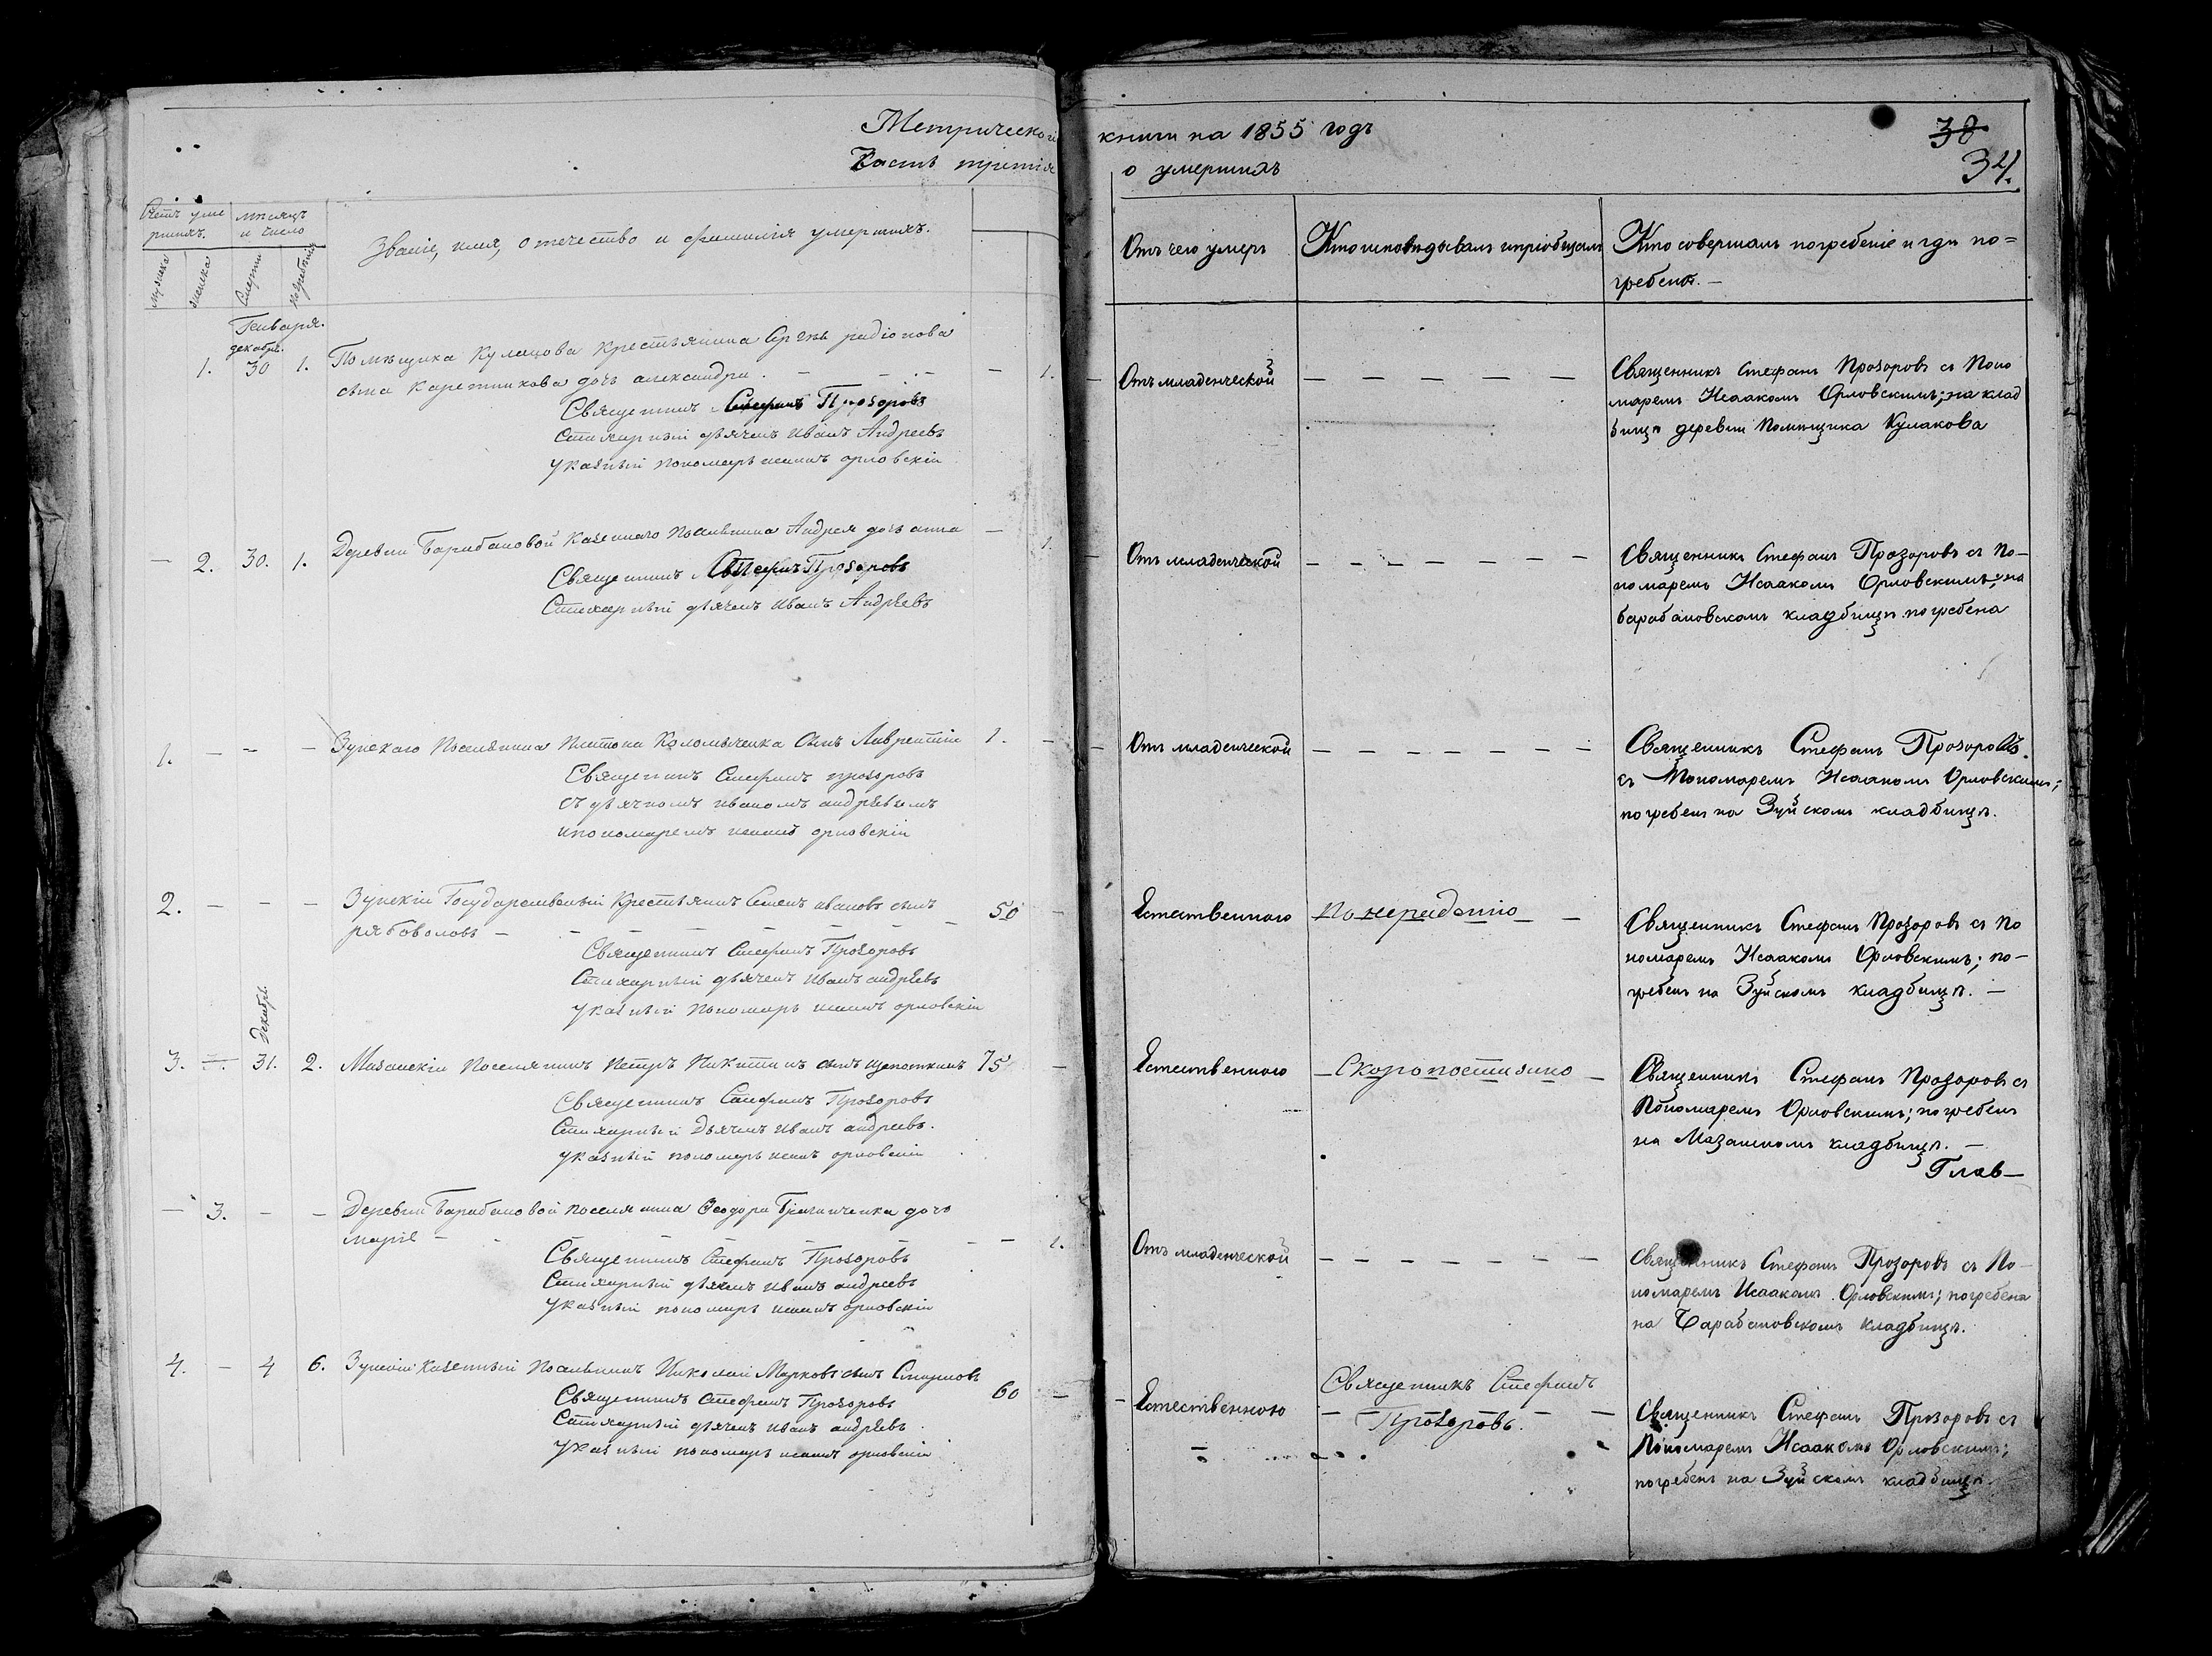 Метрической
Часть третія
Счетъ уме
ршихъ.
мѣсяцъ
и число
мужеска
женска
Смерти
погребенія
Званіе, имя, отечество и фамилія умершихъ.
Генваря.
декабр.
1. 30 1. Помѣщика Кулакова Крестьянина Сергѣя радіонова
сына Каретникова дочь александра. — — — — 1.
Священникъ Стефанъ Прозоровъ
Стихарный дьячекъ Иванъ Андреевъ
указный пономарь исаакъ орловскій
— 2. 30. 1. Деревни Барабановой Казеннаго Поселянина Андрея дочь анна — 1.
Священникъ Стефанъ Прозоровъ
Стихарный дьячекъ Иванъ Андреевъ
1. — — — Зуйскаго Поселянина Платона Коломыченка Сынъ Лаврентій 1. —
Священникъ Стефанъ прозоровъ
съ дьячкомъ иваномъ андреевымъ
ипономаремъ исаакъ орловскій
2. — — — Зуйскій Государственный Крестьянинъ Семенъ ивановъ сынъ
рябоволовъ — — — — — — — — 50 —
Священникъ Стефанъ Прозоровъ
Стихарный дьячекъ Иванъ андреевъ
указный пономарь исаакъ орловскій
декабр.
3. — 31. 2. Мазанскій Поселянинъ Петръ Никитинъ сынъ Щепоткинъ 75 —
Священникъ Стефанъ Прозоровъ
Стихарный Дьячекъ Иванъ андреевъ.
указный пономарь исаакъ орловскій
— 3. — — Деревни Барабановой поселянина Ѳеодора дочь
марія — — — — — — — — 1.
Священникъ Стефанъ Прозоровъ
Стихарный дьячекъ Иванъ андреевъ
указный пономарь исаакъ орловскій
4. — 4 6. Зуйскій Казенный Поселянинъ Николай Марковъ сынъ Смирновъ
60 —
Священникъ Стефанъ Прозоровъ
Стихарный дьячекъ иванъ андреевъ
указный пономарь исаакъ орловскій
книги на 1855 годъ
о умершихъ
38
34.
Отъ чего умеръ
Кто исповѣдывалъ ипріобщалъ
Кто совершалъ погребеніе и гдѣ по=
гребенъ. —
Отъ младенческой — — — — —
Священникъ Стефанъ Прозоровъ съ Поно
маремъ Исаакомъ Орловскимъ; на клад
бищѣ деревни Помѣщика Кулакова
Отъ младенческой — — — — — —
Священникъ Стефанъ Прозоровъ съ По—
номаремъ Исаакомъ Орловскимъ; на
барабановскомъ кладбищѣ погребена
Отъ младенческой — — — — — — —
Священникъ Стефанъ Прозоровъ
съ Пономаремъ Исаакомъ Орловскимъ;
погребенъ на Зуйскомъ кладбищѣ.
Естественною По нерадѣнію —
Священникъ Стефанъ Прозоровъ съ По
номаремъ Исаакомъ Орловскимъ; по—
гребенъ на Зуйскомъ кладбищѣ. —
Естественною — Скоропостижно —
Священникъ Стефанъ Прозоровъ съ
Пономаремъ Орловскимъ; погребенъ
на Мазанскомъ кладбищѣ. —
Глав—
Отъ младенческой — — — — — — —
Священникъ Стефанъ Прозоровъ съ По—
номаремъ Исаакомъ Орловскимъ; погребена
на Барабановскомъ кладбищѣ.
Естественною
Священникъ Стефанъ
Прозоровъ.
Священникъ Стефанъ Прозоровъ съ
Пономаремъ Исаакомъ Орловскимъ;
погребенъ на Зуйскомъ кладбищѣ.